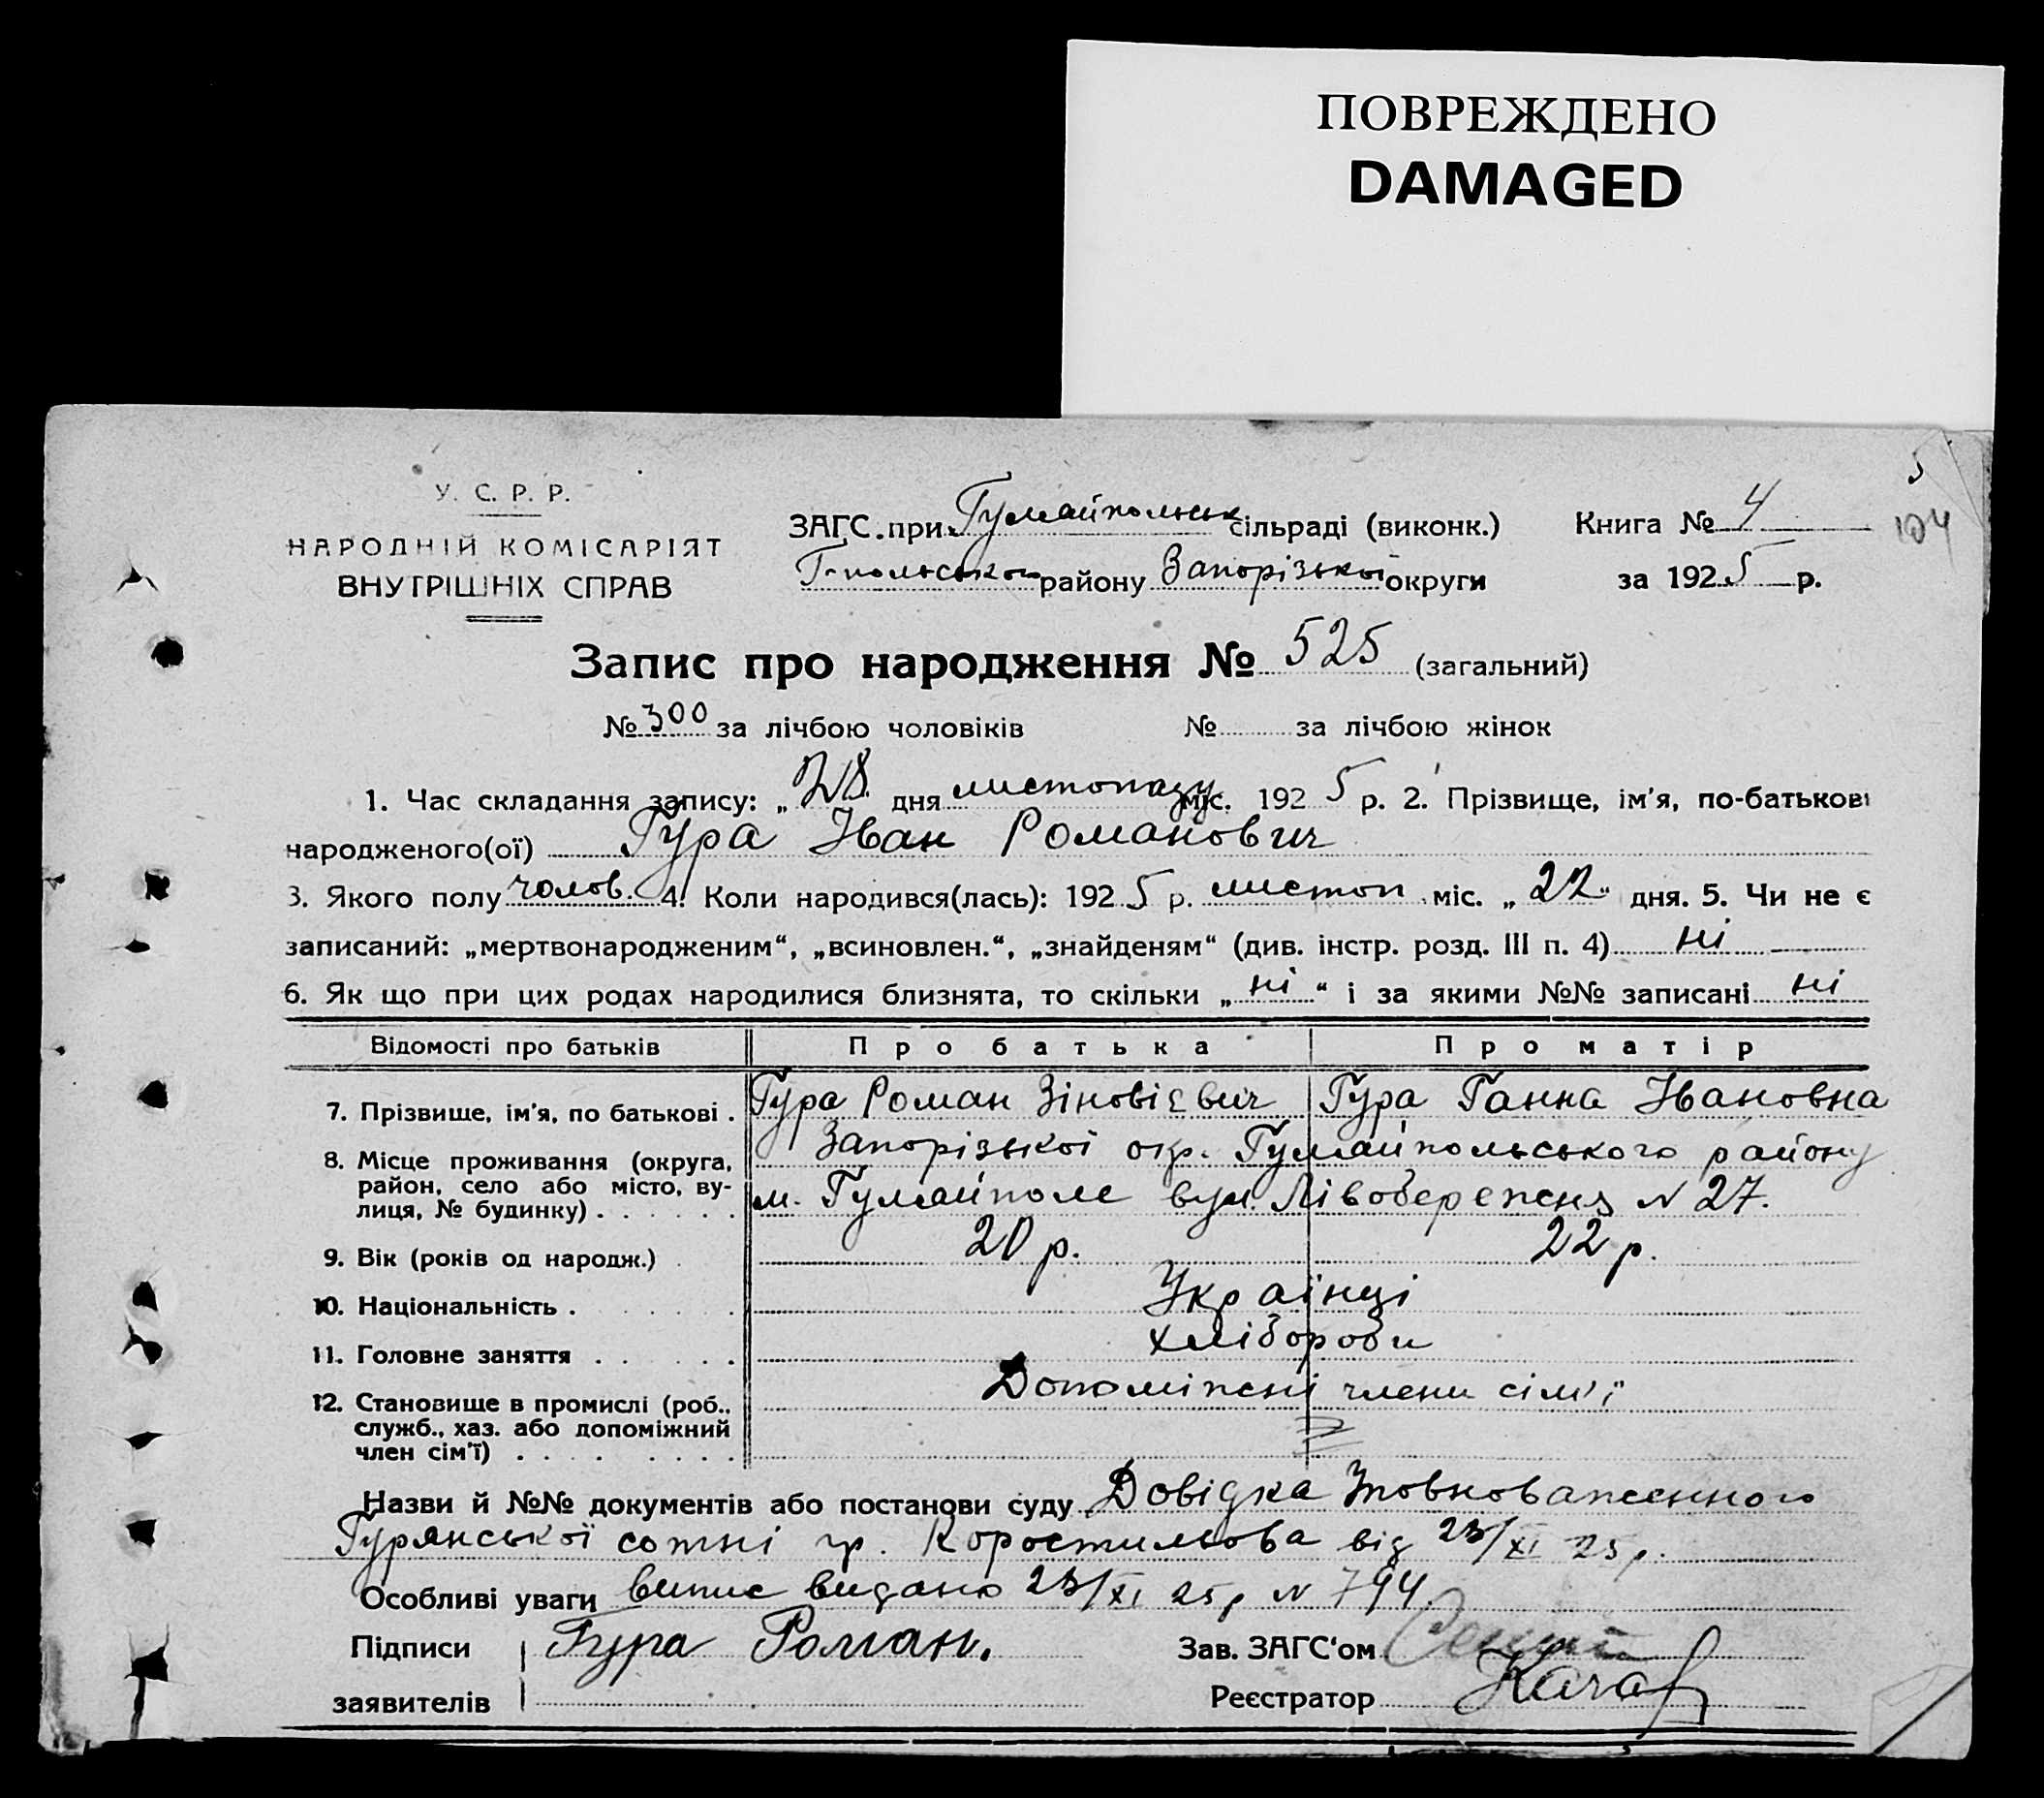 ПОВРЕЖДЕНО
DAMAGED
5
104
У. С. Р. Р.
НАРОДНІЙ КОМІСАРІЯТ
ВНУТРІШНІХ СПРАВ
ЗАГС при Гуляйпольськ сільраді (виконк.) Книга № 4
Г-польського району Запорізької округи за 1925 р.
Запис про народження № 525 (загальний)
№ 300 за лічбою чоловіків № за лічбою жінок
1. Час складання запису: „28 дня листопаду міс. 1925 р. 2. Прізвище, ім'я, по-батькові
народженого(ої) Гура Іван Романович
3. Якого полу чолов. 4. Коли народився(лась): 1925 р. листоп міс. „22" дня. 5. Чи не є
записаний: „мертвонародженим“, „всиновлен.“, „знайденям“ (див. інстр. розд. III п. 4) ні
6. Як що при цих родах народилися близнята, то скільки „ні“ і за якими №№ записані ні
Відомості про батьків Про батька Про матір
7. Прізвище, ім'я, по батькові . Гура Роман Зіновієвич Гура Ганна Івановна
8. Місце проживання (округа, Запорізької окр. Гуляйпольського району
район, село або місто, ву-
лиця, № будинку) . . . . . . м. Гуляйполе вул. Лівобережня N 27.
9. Вік (років од народж.) 20 р. 22 р.
10. Національність . Українці
11. Головне заняття . . . . . . хлібороби
12. Становище в промислі (роб., Допоміжні члени сім'ї
служб., хаз. або допоміжний
член сім'ї) . . . . . . . .
Назви й №№ документів або постанови суду Довідка Уповноваженного
Гурянської сотні гр. Коростильова від 23/XI 25 р.
Особливі уваги випис видано 23/XI 25 р N 794.
Підписи Гура Роман. Зав. ЗАГС‘ом
заявителів Реєстратор